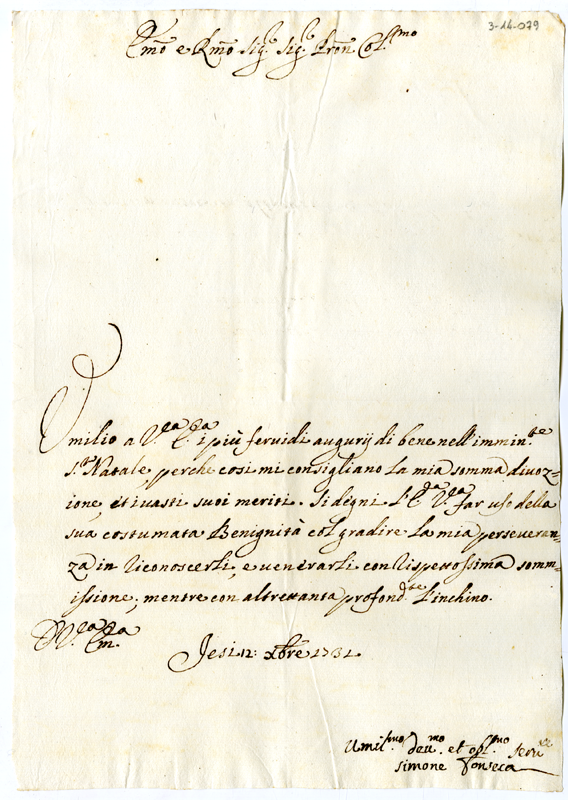 3-14-079
Emõ e Rmõ Sig.r Sig.r Prõn Col.mo
Vmilio a V.ra E.za i più feruidi augurij di bene nell'immin.te
S.to Natale, perche così mi consigliano la mia somma diuoz=
ione, et i uasti suoi meriti. Si degni l'E.za V.ra far uso della
sua costumata Benignità col gradire la mia perseueran=
za in riconoscerli, e uenerarli con rispetosissima somm=
issione; mentre con altretanta profond.te l'inchino.
D V.ra Em.za
Jesi 12: xbrẽ 1731
Umil.mo deu.mo et obl.mo Seru.re
Simone Fonseca